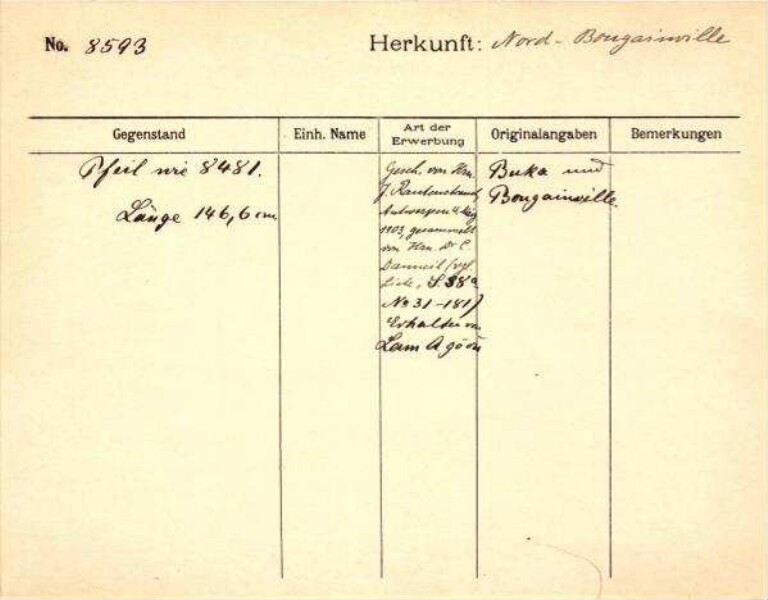 No. 8593
Herkunft: Nord-Bougainville
Gegenstand
Einh. Name
Art der
Erwerbung
Originalangaben
Bemerkungen
Pfeil wie 8481.
Länge 146,6 cm
Gesch. von Hrn.
J. Rautenstrauch
Antwerpen
1903, gesammelt
von Hrn. Dr C.
Danneil
Liste, S. 38a
No 31-181)
Erhalten
Lam
Buka und
Bougainville.